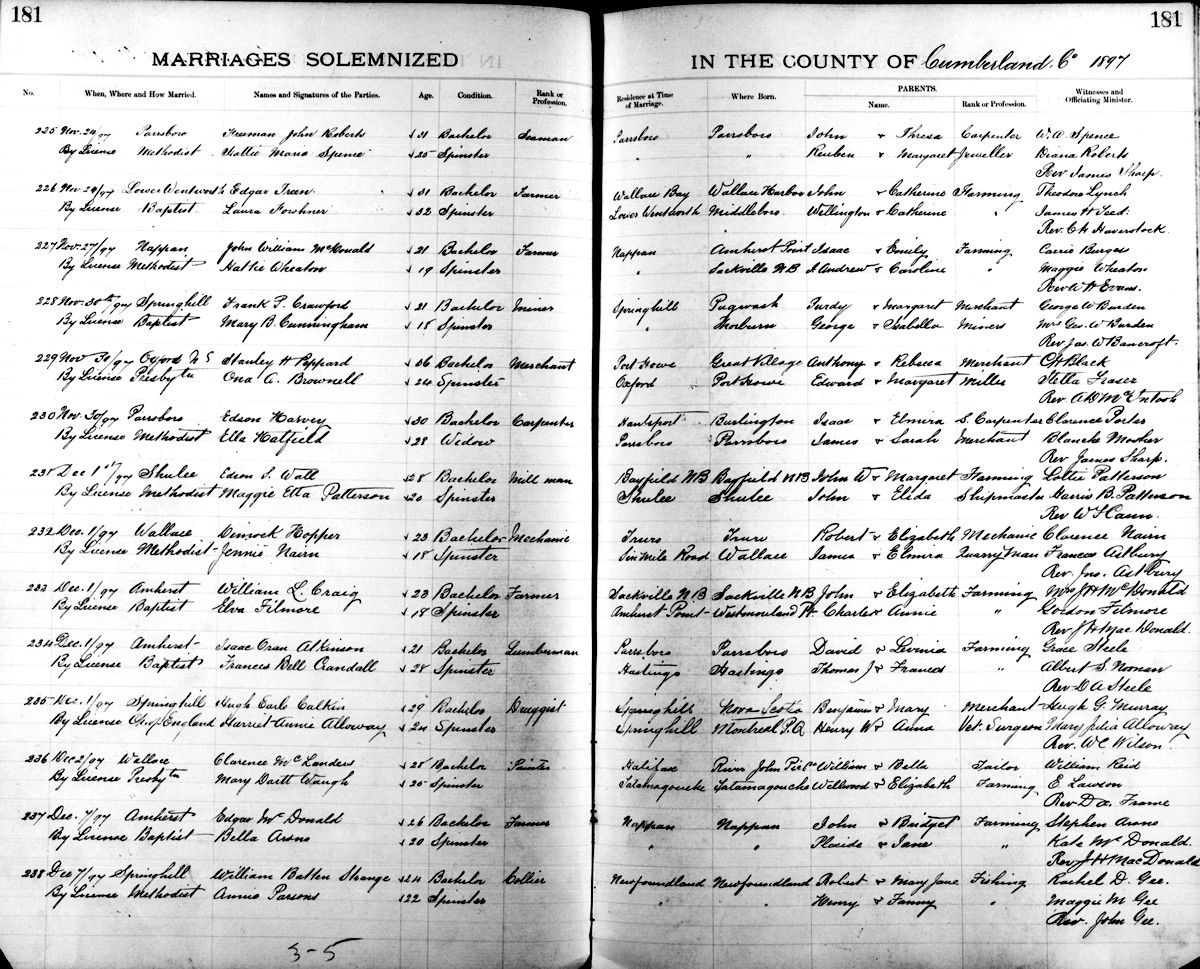 181
181
MARRIAGES SOLEMNIZED
IN THE COUNTY OF Cumberland Co 1897
No. When, Where and How Married. Names and Signatures of the Parties. Age. Condition. Rank or Profession. Residence at Time of Marriage. Where Born. PARENTS. Name. Rank or Profession. Witnesses and Officiating Minister.
225 Nov. 24/97 Parrsboro Freeman John Roberts 31 Bachelor Seaman Parrsboro Parrsboro John & Thresa Carpenter W. A. Spence
By License Methodist Hattie Maria Spence 25 Spinster " " Reuben & Margaret Jeweller Diana Roberts
Rev James Sharp.
226 Nov 24/97 Lower Wentworth Edgar Treen 31 Bachelor Farmer Wallace Bay Wallace Harbor John & Catherine Farming Theodore Lynch
By License Baptist. Laura Forshner 32 Spinster Lower Wentworth Middleboro. Wellington & Catherine " James H Teed.
Rev. C H Haverstock.
227 Nov. 27/97 Nappan John William McDonald 21 Bachelor Farmer Nappan Amherst Point Isaac & Emily Farming Carrie Burges
By License Methodist Hattie Wheaton 19 Spinster " Sackville N B Andrew & Caroline " Maggie Wheaton
Rev W H Evans.
228 Nov. 30th 97 Springhill Frank P. Crawford 21 Bachelor Miner Springhill Pugwash Purdy & Margaret Merchant George W Burden
By License Baptist Mary B. Cunningham 18 Spinster " Thorburn George & Isabella Miners Mrs Geo. W Burden
Rev Jas. W Bancroft.
229 Nov 30/97 Oxford N S Stanley H Peppard 36 Bachelor Merchant Port Howe Great Village Anthony & Rebecca Merchant C H Black
By License Presbytn Ona A. Brownell 24 Spinster Oxford Port Howe Edward & Margaret Miller Stella Fraser
Rev A D McIntosh
230 Nov. 30/97 Parrsboro Edson Harvey 30 Bachelor Carpenter Hantsport Burlington Isaac & Elmira S. Carpenter Clarence Porter
By License Methodist Ella Hatfield 28 Widow Parrsboro Parrsboro James & Sarah Merchant Blanche Mosher
Rev James Sharp.
231 Dec 1st/97 Shulee Edson S. Wall 28 Bachelor Mill man Bayfield N B Bayfield N B John W & Margaret Farming Lottie Patterson
By License Methodist Maggie Etta Patterson 20 Spinster Shulee Shulee John & Elida Shipmaster Harris B. Patterson
Rev W S Cann.
232 Dec. 1/97 Wallace Dimock Hopper 23 Bachelor Mechanic Truro Truro Robert & Elizabeth Mechanic Clarence Nairn
By License Methodist Jennie Nairn 18 Spinster Six Mile Road Wallace James & Elmira Quarry Man Frances Astbury
Rev. Jno. Astbury
233 Dec. 1/97 Amherst William L. Craig 23 Bachelor Farmer Sackville N B Sackville N B John & Elizabeth Farming Mrs J H McDonald
By License Baptist Elva Filmore 18 Spinster Amherst Point Westmoreland Pt Charles & Annie " Gordon Filmore
Rev. J H MacDonald.
234 Dec. 1/97 Amherst Isaac Oran Atkinson 21 Bachelor Lumberman Parrsboro Parrsboro David & Levinia Farming Grace Steele
By License Baptist Frances Bell Crandall 28 Spinster Hastings Hastings Thomas J & Frances " Albert S. Noonan
Rev. D A Steele
235 Dec. 1/97 Springhill Hugh Earle Calkin 29 Bachelor Druggist Springhill Nova Scotia Benjamin & Mary Merchant Hugh G. Murray
By License Ch of England Harriet Annie Alloway 24 Spinster Springhill Montreal P.Q Henry W & Anna Vet. Surgeon Mary Julia Alloway
Rev. W C Wilson
236 Dec 2/97 Wallace Clarence McLanders 28 Bachelor Painter Halifax River John Pic Co William & Bella Tailor William Reid
By License Presbytn Mary Daitt Waugh 25 Spinster Tatamagouche Tatamagouche Wellwood & Elizabeth Farming E Lawson
Rev. D A. Frame
237 Dec. 7/97 Amherst Edgar McDonald 26 Bachelor Farmer Nappan Nappan John & Bridget Farming Stephen Arsno
By License Baptist Bella Arsno 20 Spinster " " Placide & Jane " Kate McDonald.
Rev J H MacDonald
238 Dec 7/97 Springhill William Batten Strange 24 Bachelor Collier Newfoundland Newfoundland Robert & Mary Jane Fishing Rachel D. Gee.
By License Methodist Annie Parsons 22 Spinster " " Henry & Fanny " Maggie M Gee
Rev. John Gee.
3-5